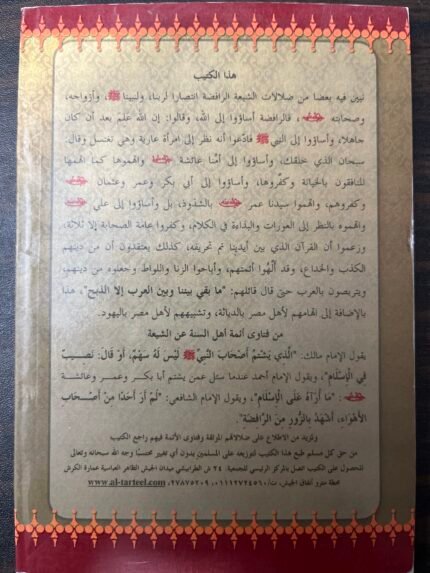 هذا الكتيب
نبين فيه بعضا من ضلالات الشيعة الرافضة انتصارا لربنا، ولنبينا ﷺ، وأزواجه،
وصحابته، فالرافضة أساؤوا إلى الله، وقالوا: إن الله عَلِمَ بعد أن كان
جاهلا، وأساؤوا إلى النبي ﷺ فادَّعوا أنه نظر إلى امرأة عارية وهي تغتسل وقال:
سبحان الذي خلقك، وأساؤوا إلى أمِّنا عائشة واتهموها كما اتهمها
المنافقون بالخيانة وكفَّروها، وأساؤوا إلى أبي بكر وعمر وعثمان
وكفروهم، واتهموا سيدنا عمر بالشذوذ، بل وأساؤوا إلى علي
واتهموه بالنظر إلى العورات والبذاءة في الكلام، وكفروا عامة الصحابة إلا ثلاثة،
وزعموا أن القرآن الذي بين أيدينا تم تحريفه، كذلك يعتقدون أن من دينهم
الكذب والخداع، وقد ألَّهُوا أئمتهم، وأباحوا الزنا واللواط وجعلوه من دينهم،
ويتربصون بالعرب حتى قال قائلهم: "ما بقي بيننا وبين العرب إلا الذبح"، هذا
بالإضافة إلى اتهامهم لأهل مصر بالدياثة، وتشبيههم لأهل مصر باليهود.
من فتاوى أئمة أهل السنة عن الشيعة
يقول الإمام مالك: "الَّذي يَشْتِمُ أَصْحَابَ النَّبِيِّ ﷺ لَيْسَ لَهُ سَهْمٌ، أَوْ قَالَ: نَصِيبٌ
فِي الْإِسْلَامِ"، ويقول الإمام أحمد عندما سئل عمن يشتم أبا بكر وعمر وعائشة
: "مَا أُرَاهُ عَلَى الْإِسْلَامِ"، ويقول الإمام الشافعي: "لَمْ أَرَ أَحَدًا مِنْ أَصْحَابِ
الْأَهْوَاءِ، أَشْهَدُ بِالزُّورِ مِنَ الرَّافِضَةِ".
ولمزيد من الاطلاع على ضلالاتهم الموثقة وفتاوى الأئمة فيهم راجع الكتيب
من حق كل مسلم طبع هذا الكتيب لتوزيعه على المسلمين بدون أي تغيير محتسبًا وجه الله سبحانه وتعالى
للحصول على الكتيب اتصل بالمركز الرئيسي للجمعية. ٢٤ ش الطرابيشي ميدان الجيش الظاهر العباسية عمارة الكرش
محطة مترو أنفاق الجيش. ت/٠١١١٢٧٤٥٦٠، ٢٧٨٧٥٢٠٩، www.al-tarteel.com